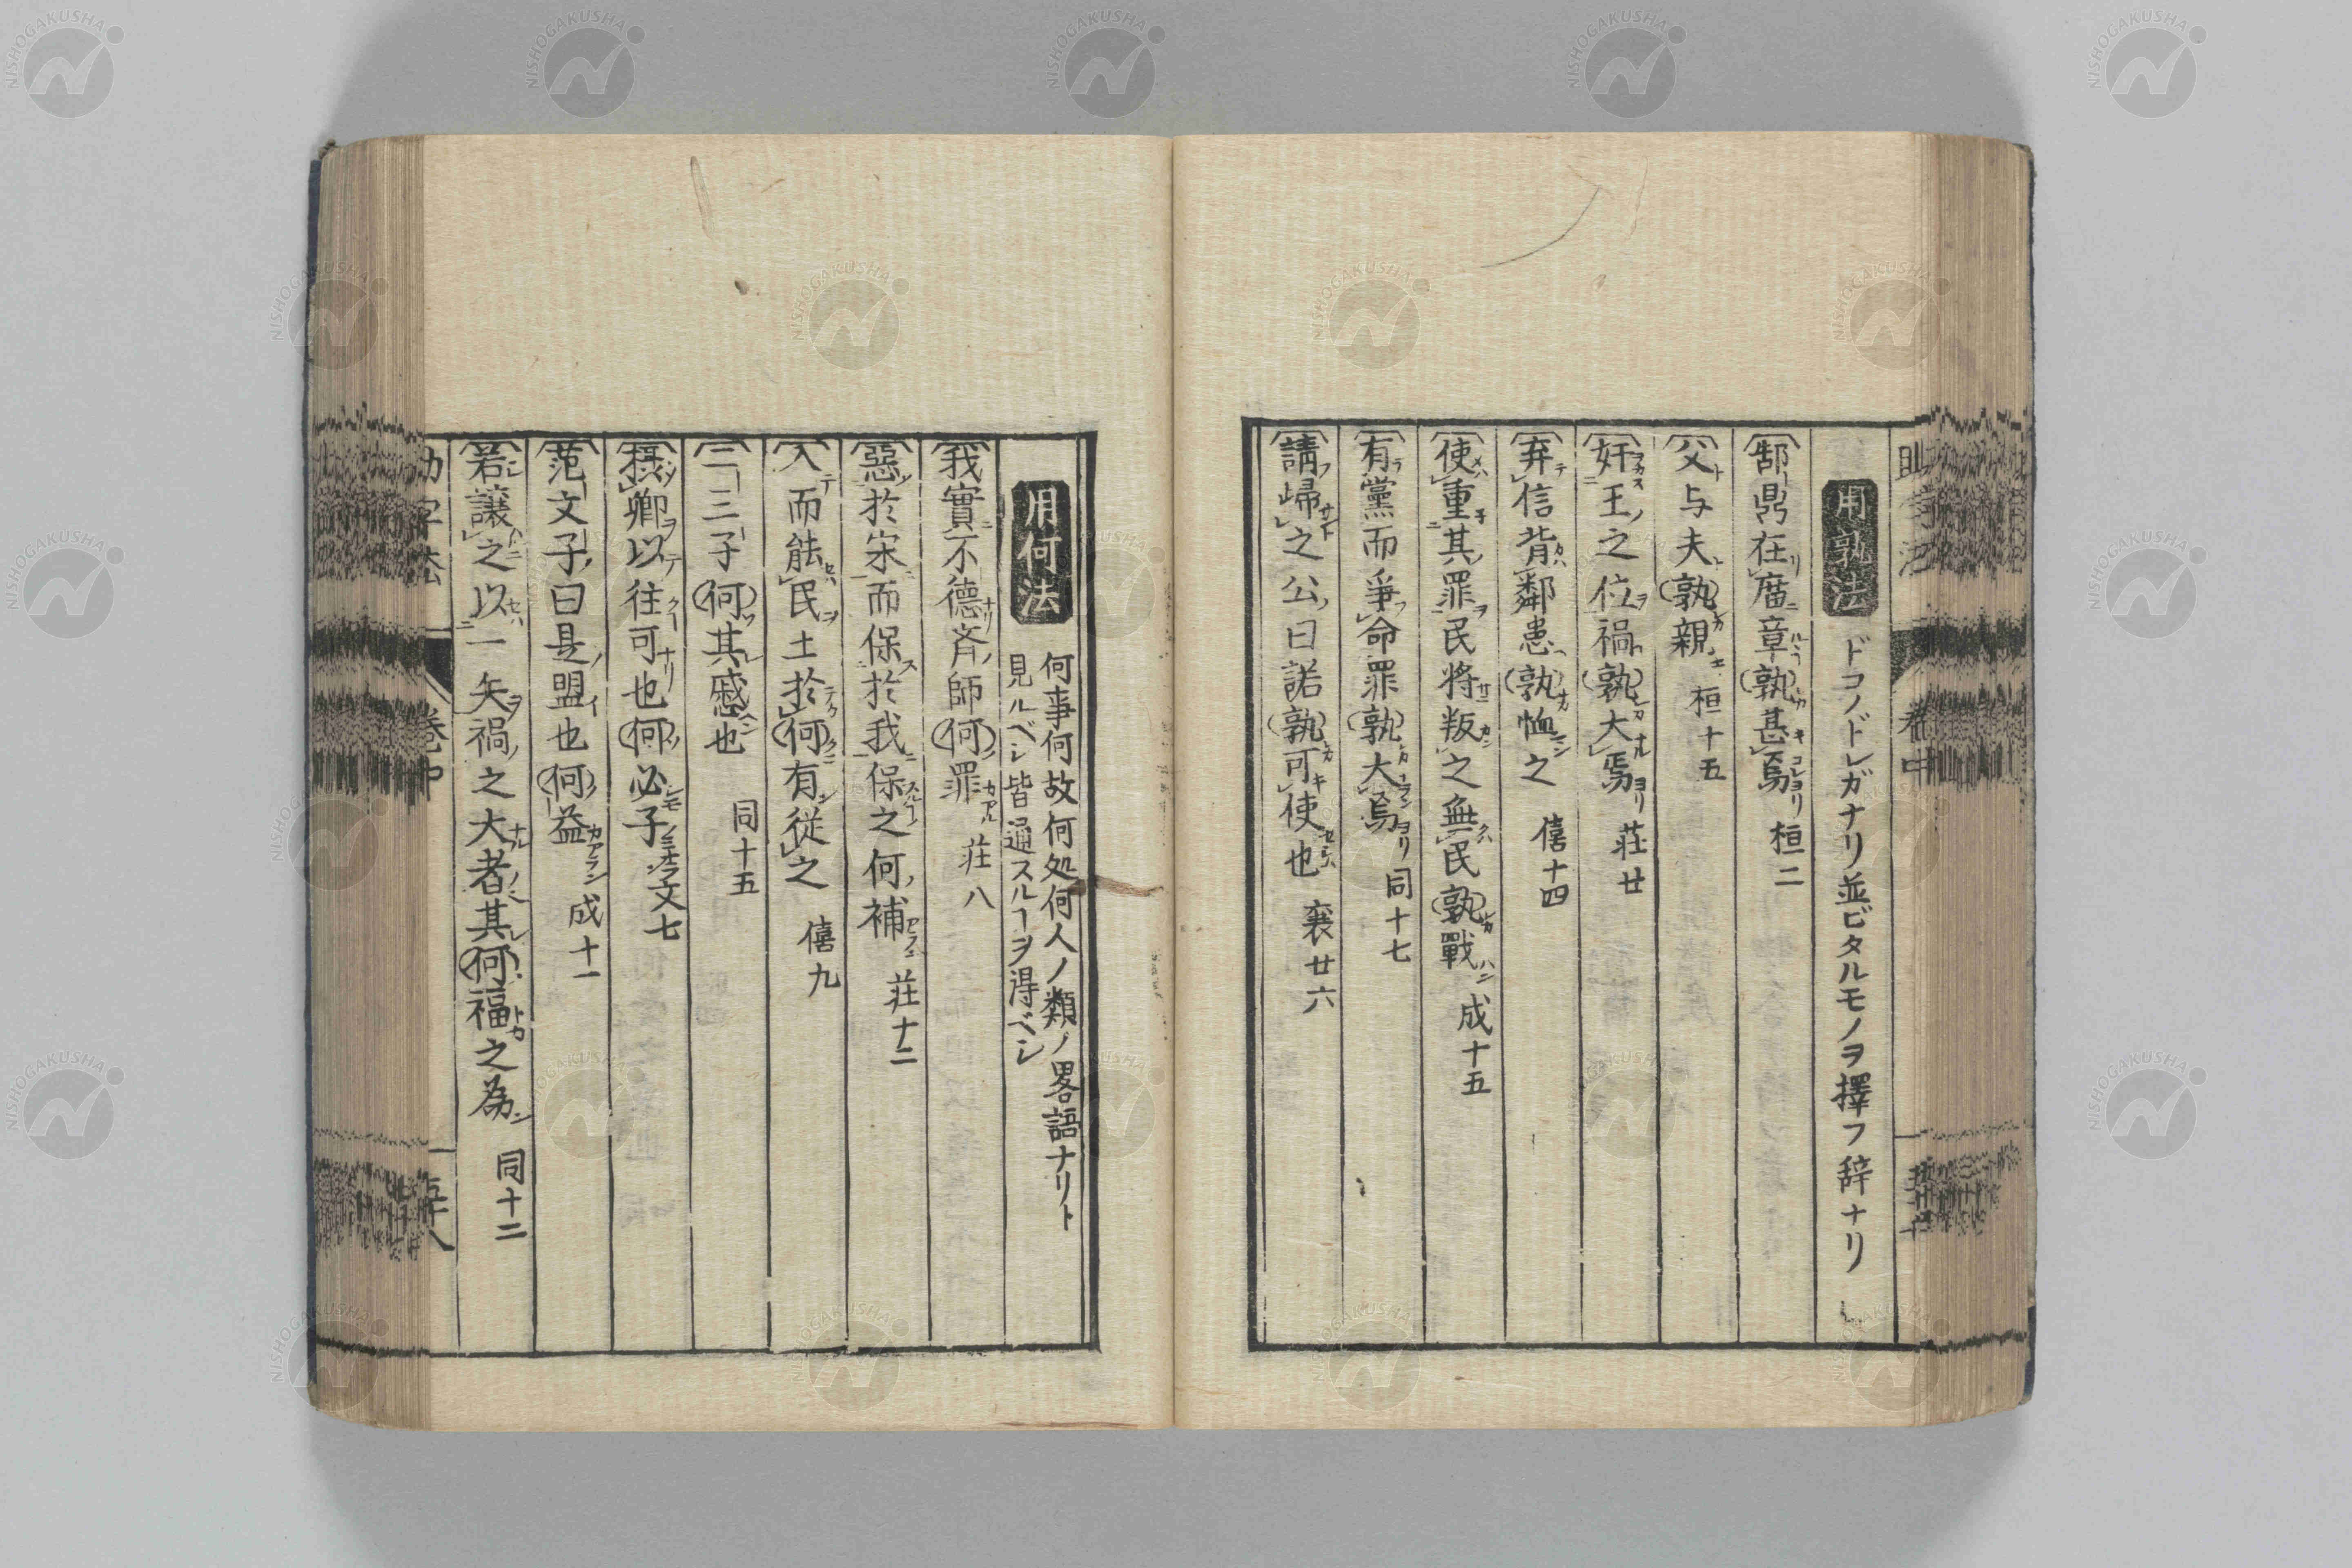 用孰法 ドコノドレガナリ並ビタルモノヲ擇フ辞ナリ
郜鼎在廟章孰甚焉 桓二
父与夫孰親 桓十五
奸王之位禍孰大焉 荘廿
弃信背鄰患孰恤之 僖十四
使重其罪民将叛之無民孰戰 成十五
有黨而爭命罪孰大焉 同十七
請歸之公曰諾孰可使也 襄廿六
用何法 何事何故何処何人ノ類ノ畧語ナリト
見ルベシ皆通スルヿヲ得ベシ
我實不德斉師何罪 荘八
惡於宋而保於我保之何補 荘十二
入而能民土於何有従之 僖九
二三子何其慼也 同十五
摂卿以往可也何必子 文七
范文子曰是盟也何益 成十一
若譲之以一矢禍之大者其何福之為 同十二
助字法 巻中